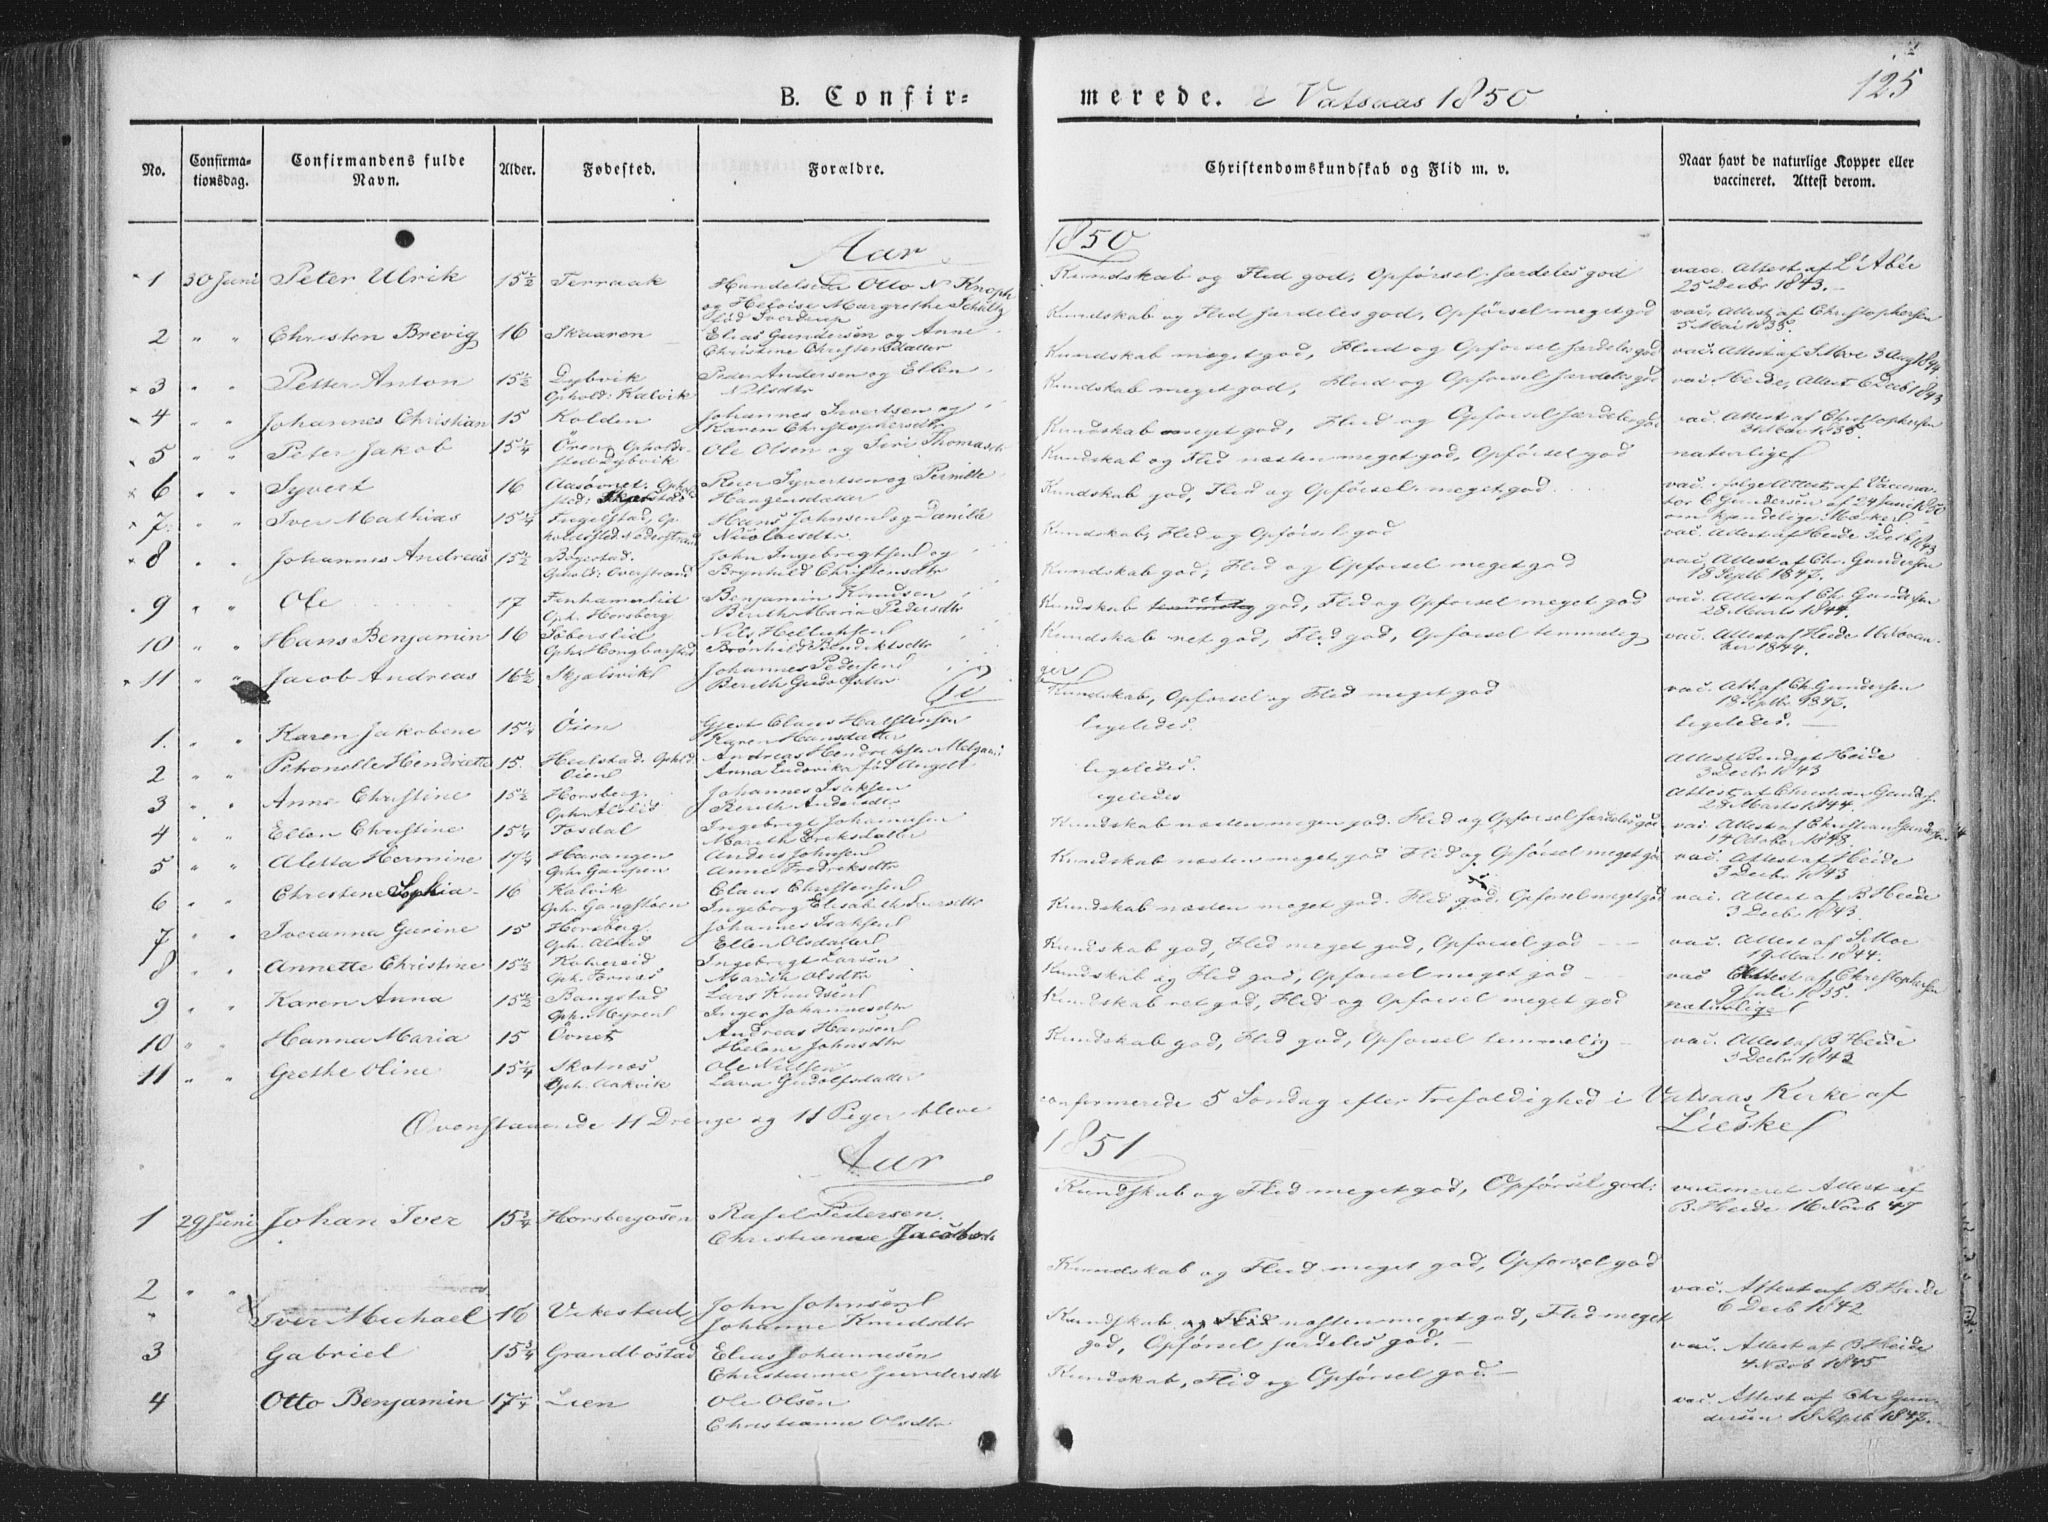 125
B. Confirmerede. i Vatsaas 1850
No. Confirmationsdag. Confirmandens fulde Navn. Alder. Fødested. Forældre. Christendomskundskab og Flid m. v. Naar havt de naturlige Kopper eller vaccineret. Attest derom.
Aar 1850
1 30 Juni Peter Ulrik 15½ Terraak Otto N Knoph og Heloise Margrethe Schultz fød Sverdrup Kundskab og Flid god, Opførsel særdeles god vacc. Attest af L'Abée 25 Decbr 1843.
2 " " Christen Brevig 16 Skaaren Elias Gundersen og Anne Christine Christensdatter Kundskab og Flid særdeles god, Opførsel meget god vac. Attest af Christophersen 5 Mai 1835.
3 " " Petter Anton 15½ Dybvik Ophold: Kalvik Peder Andersen og Ellen Nilsdtr Kundskab meget god, Flid og Opførsel særdeles god vac. Attest af S. Moe 3 Aug 1844.
4 " " Johannes Christian 15 Kolden Johannes Sivertsen og Karen Christophersdtr Kundskab meget god, Flid og Opførsel særdeles god vac. Heide, Attest 6 Decb 1843
5 " " Peter Jakob 15¼ Ören Opholdssted Dybvik Ole Olsen og Siri Thomasdtr Kundskab meget god, Flid og Opførsel særdeles god vac. Attest af Christophersen 31 Mai 1835.
6 " " Syvert 16 Aasövnet. Reier Syvertsen og Pernille Haagensdatter Kundskab og Flid næsten meget god, Opførsel god naturlige
7 " " Iver Mathias 15¼ Fugelstad, Hans Johnsen og Danille Nicolaisdtr Kundskab god, Flid og Opførsel meget god vac. ifølge Attest af Vaccinator C Gundersen af 24 Juni 1850 om kjendelige Mærker
8 " " Johannes Andreas 15½ Bogestad. Ophold: Overstrand John Ingebregtsen og Brynhild Christensdtr Kundskab, Flid og Opførsel god vac. Attest af Heide 3 Decb 1843
9 " " Ole 17 Oph. Horsberg Benjamin Knudsen Berith Maria Pedersdtr Kundskab god, Flid og Opførsel meget god vac. Attest af Chr. Gundersen 18 Septb 1847.
10 " " Hans Benjamin 16 Söberslid Nils Brönhild Bendiktsdtr Kundskab ret god, Flid og Opførsel meget god vac. Attest af Chr Gundersen 28 Marts 1844.
11 " " Jacob Andreas 16½ Skjælsvik Johannes Pedersen Berith Gudolfsdtr Kundskab ret god, Flid god, Opførsel temmelig vac. Attest af Heide 11 November 1844.
Piger
1. " " Karen Jakobene 15¼ Öien Claus Halstensen Karen Hansdatter Kundskab, Opførsel og Flid meget god vac. Att. af Chr. Gundersen 18 Septbr
2 " " Petronelle Hendriette 15. Hulstad. Andreas Hendriksen Anna Ludovika fød Angell ligeledes. ligeledes.
3 " " Anne Christine 15½ Horsberg. Oph. Alslid Johannes Isaksen Berith Andersdtr ligeledes. Attest Bendigt Heide 3 Decbr 1843
4 " " Ellen Christine 15¼ Tosdal Ingebrigt Johannesen Marith Eriksdatter ligeledes Attest af Christian Gunders. 28 Marts 1844.
5 " " Aletta Hermine 17¼ Harangen Oph. Gaupen Anders Johnsen Anne Fredriksdtr Kundskab næsten megen god. Flid og Opførsel særdeles god vac. Attest af Christian Gundersen 14 October 1848.
6 " " Christine Sophia 16 Kalvik Oph. Gangstöen Claus Christensen Ingeborg Elisabeth Iversdtr Kundskab næsten meget god Flid og Opførsel meget god vac. Attest af Heide 3 Decbr 1843
7 " " Iveranna Gurine 15 Horsberg. Oph. Alslid Johannes Isaksen Ellen Olsdatter Kundskab næsten meget god. Flid god. Opførsel meget god vac. Attest af B Heide 3 Decb 1843.
8 " " Annette Christine 15½ Kolvereid Oph. Ternæs Ingebrigt Larsen Marith Olsdtr Kundskab god, Flid meget god, Opførsel god vac. Attest af S Moe 19 Mai 1844.
9 " " Karen Anna 15½ Bangstad Oph. Myren Lars Knudsen Inger Johannesdtr Kundskab og Flid god, Opførsel meget god vac Attest af Christophersen 9 Juli 1835.
10 " " Hanna Maria 15 Övnet Andreas Hansen Helene Johnsdtr Kundskab ret god, Flid og Opførsel meget god naturlige
11 " " Grethe Oline 15¼ Skotnæs Oph. Aakvik Ole Nilsen Lava Gudolfsdatter Kundskab god, Flid god, Opførsel temmelig vac. Attest af B Heide 3 Decbr 1843
Ovenstaaende 11 Drenge og 11 Piger bleve confirmerede 5 Söndag efter Trefoldighed i Vatsaas Kirke af
Aar 1851
1 29 Juni Johan Iver 15¾ Horsbergosen Rafel Pedersen. Christianne Jacobsdtr Kundskab og Flid meget god, Opførsel god: vaccineret Attest af B. Heide 16 Novb 47
2 " " Iver Michael 16 Vikestad John Johnsen Johanne Knudsdtr Kundskab og Flid meget god, Opførsel god vac. Attest af B Heide 6 Decb 1842
3 Gabriel 15¾ Grandböstad Elias Johannesen Christianne Gundersdtr Kundskab næsten meget god, Flid meget god, Opførsel særdeles god. vac. Attest af B Heide 4 Novb 1845
4 Otto Benjamin 17¼ Lien Ole Olsen Christianne Olsdtr Kundskab, Flid og Opførsel god vac. Attest af Chr Gundersen 18 Septb 1847.